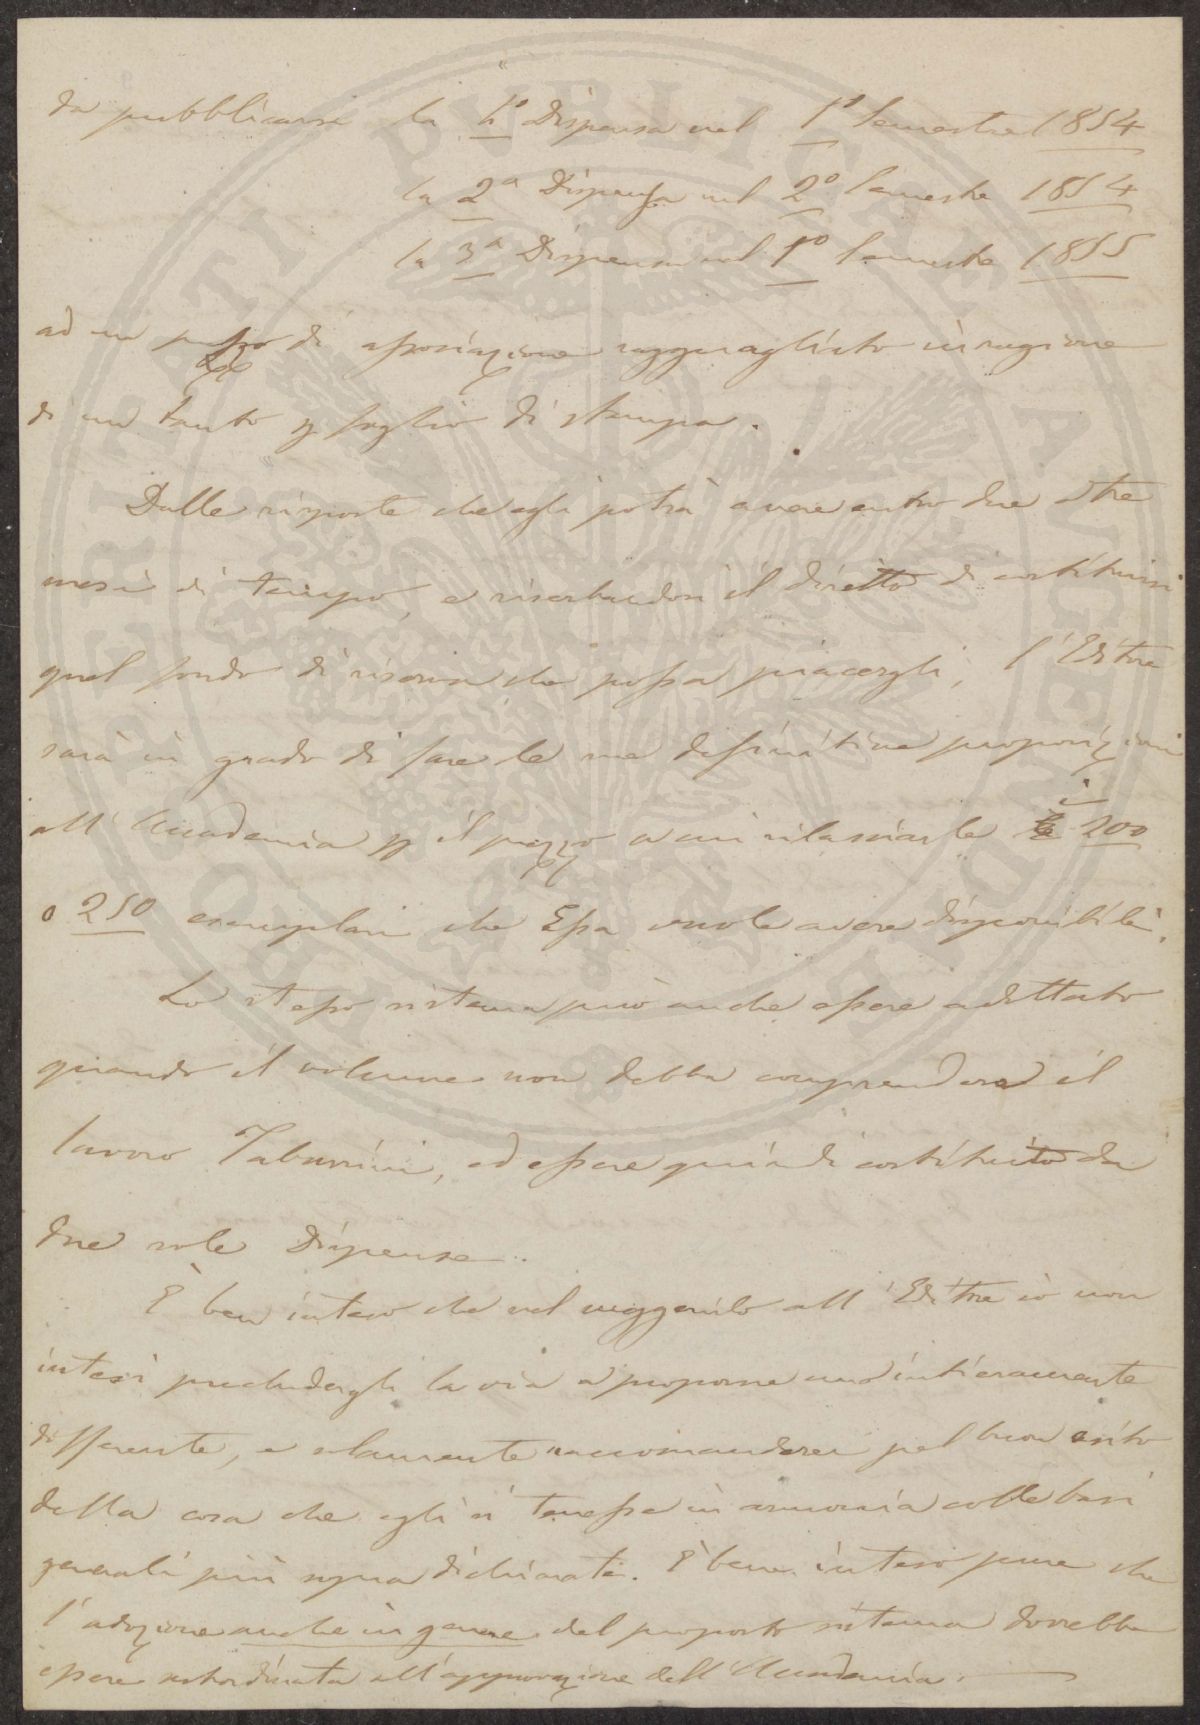 da pubblicarsi la 1ª Dispensa nel 1º Semestre 1854
la 2ª Dispensa nel 2º Semestre 1854
la 3ª Dispensa nel 1º Semestre 1855
ad un prezzo di associazione ragguagliato in ragione
di un tanto p foglio di stampa.
Dalle risposte che egli potrà avere entro due o tre
mesi di tempo, e riserbandosi il diritto di costituirsi
quel fondo di riserva che possa piacergli, l'Editore
sarà in grado di fare le sue definitive proposizioni
all'Accademia p il prezzo a cui rilasciarle i 200
o 250 esemplari che Essa vuole avere disponibili.
Lo stesso sistema può anche essere adottato
quando il volume non debba comprendere il
lavoro Tabarrini, ed essere quindi costituito da
due sole Dispense.
È ben inteso che nel suggerirlo all'Editore io non
intesi precludergli la via a proporne uno intieramente
differente, e solamente raccomanderei pel buon esito
della cosa che egli si tenesse in armonia colle basi
generali più sopra dichiarate. È bene inteso pure che
l'adozione anche in genere del proposto sistema dovrebbe
essere subordinata all'approvazione dell'Accademia.
PVBLICAE